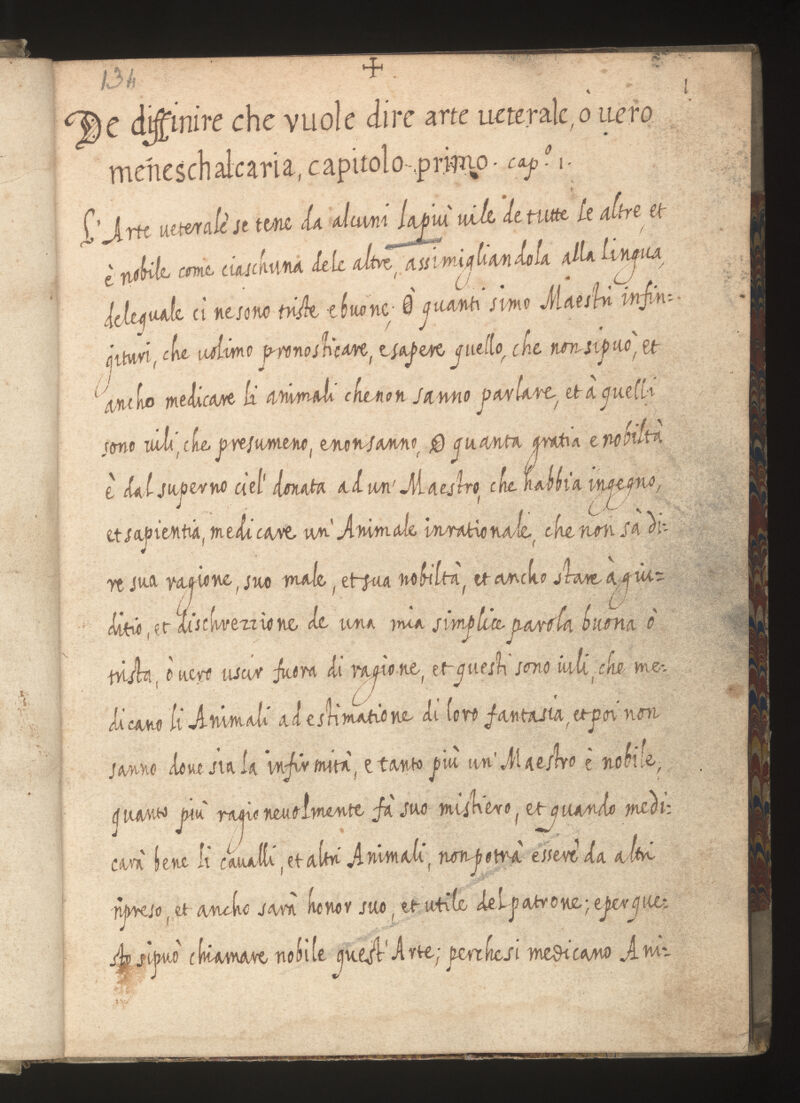 134
1
De diffinire che vuole dire arte ueterale, ò uero
meneschalcaria, capitolo primo. cap.º 1.
L'Arte ueterale se tene da alcuni la più uile de tutte le altre, et
è nobile come ciaschuna dele altre, assimigliandola alla lingua,
delequale ci ne sono triste e buone; O quanti simo Maestri infin=
gituri, che uolimo pronosticare, e sapere quello, che non si può, et
ancho medicare li animali che non sanno parlare, et à quelli
sono uili, che presumeno, e non sanno, O quanta gratia e nobiltà
è dal superno ciel' donata ad un' Maestro, che habbia ingegno,
et sapientia, medicare un' Animale inrationale, che non sà di=
re sua ragione, suo male, et sua nobiltà, et ancho stare à giu=
ditio, et dischrezzione de una mia simplice parola buona ò
trista, ò uero uscir fuora di ragione, et questi sono uili, che me=
dicano li Animali ad estimatione di loro fantasia, et poi non
sanno doue sia la infirmità, e tanto più un' Maestro è nobile,
quanto più ragioneuolmente fà suo mistiero, et quando medi=
carà bene li caualli, et altri Animali, non potrà essere da altri
ripreso, et ancho sarà honor suo, et utile del patrone; e per que=
sto si può chiamare nobile quest' Arte; perche si medicano Ani=